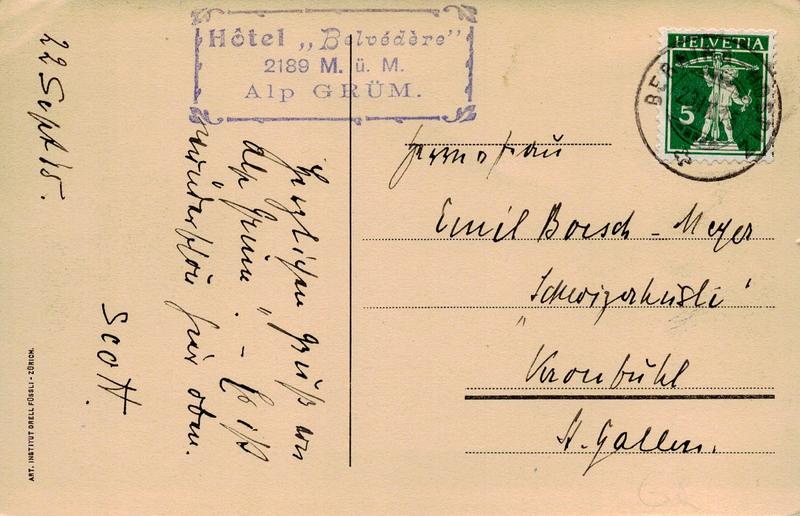 22 Sept 15.
Hôtel „Belvédère"
2189 M. ü. M.
Alp GRÜM.
Herzlichen Gruß von
Alp Grüm. - Es ist
wunderschön hier oben.
Scott.
HELVETIA
5
BERN
Frau
Emil Boesch - Meyer
„Schwizerhüsli"
Kronbühl
St. Gallen.
ART. INSTITUT ORELL FÜSSLI - ZÜRICH.